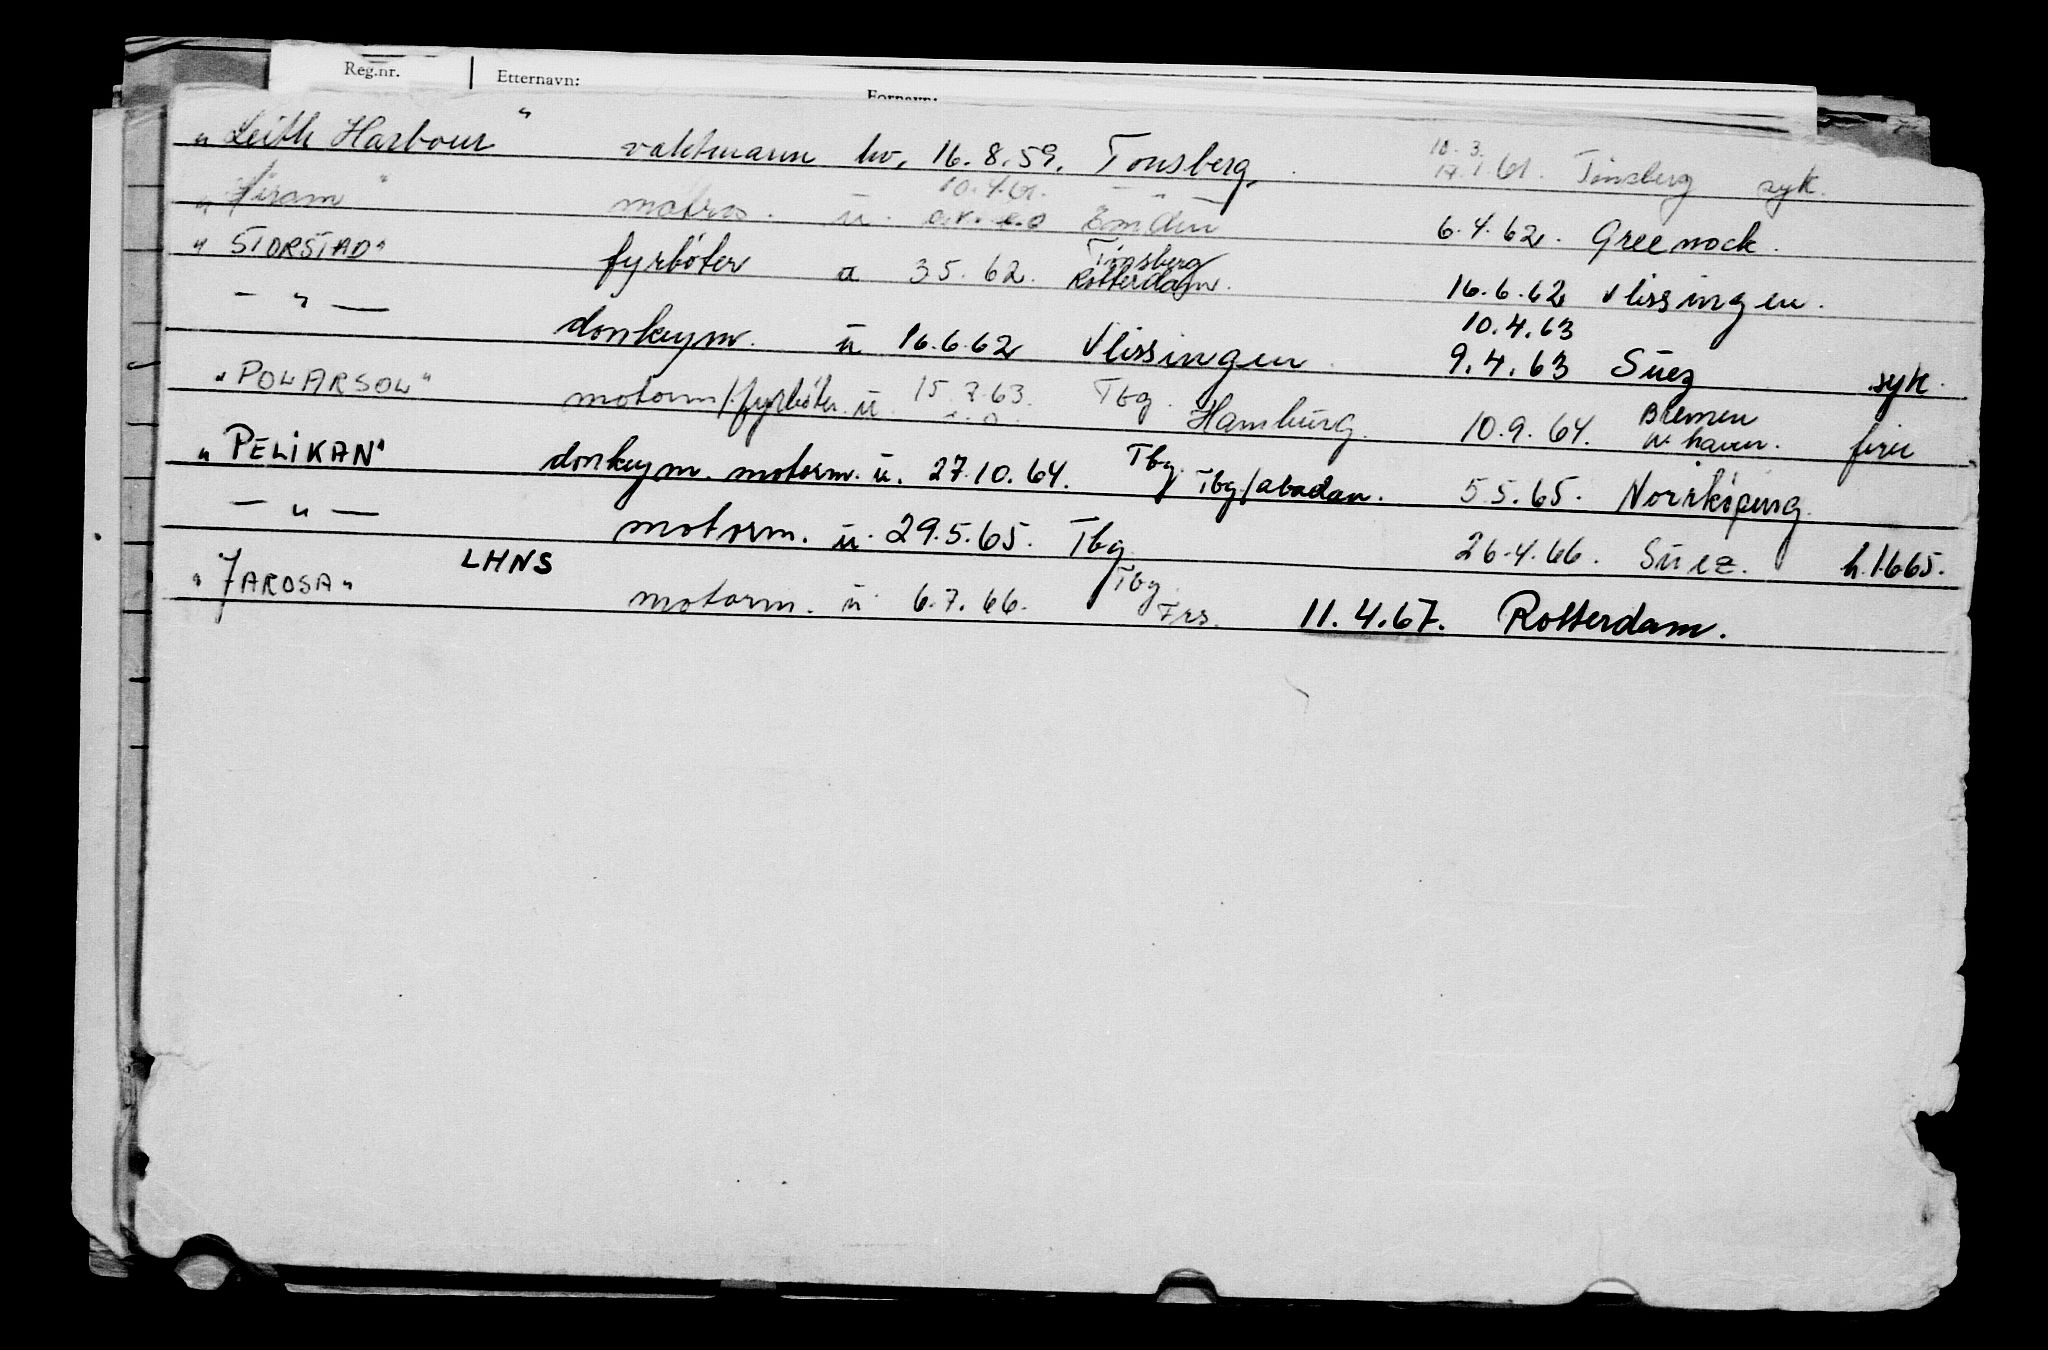 Reg.nr. Etternavn: Fornavn:
"Leith Harbour" vaktmann hv. 16.8.59. Tønsberg. 10.3. 61. Tønsberg syk.
"Hiram" matros. u. 10.4.61. Emden 6.4.62. Greenock.
"STORSTAD" fyrbøter a 3 5.62. Tønsberg Rotterdam. 16.6.62 Vlissingen.
— " — donkeym. u 16.6.62 Vlissingen. 10.4.63 9.4.63 Suez syk.
"POLARSOL" motorm/fyrbøter u 15.7.63. Tbg. Hamburg. 10.9.64. Bremen havn. ferie
"PELIKAN" donkeym. motorm. u. 27.10.64. Tbg. Tbg/abadan. 5.5.65. Norrkøping.
— " — motorm. u. 29.5.65. Tbg. 26.4.66. Suez. h.1665.
"JAROSA" LHNS motorm. u 6.7.66. Tbg. Frs. 11.4.67. Rotterdam.